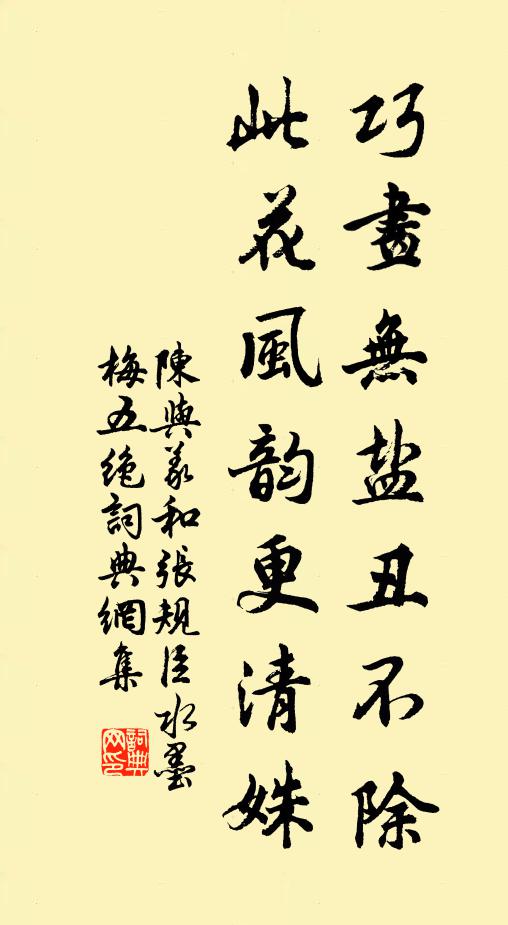 巧畫無盐丑不除
此花風韵更清姝
陳與義和張規臣水墨
梅五绝詞典網集
詞典
网印